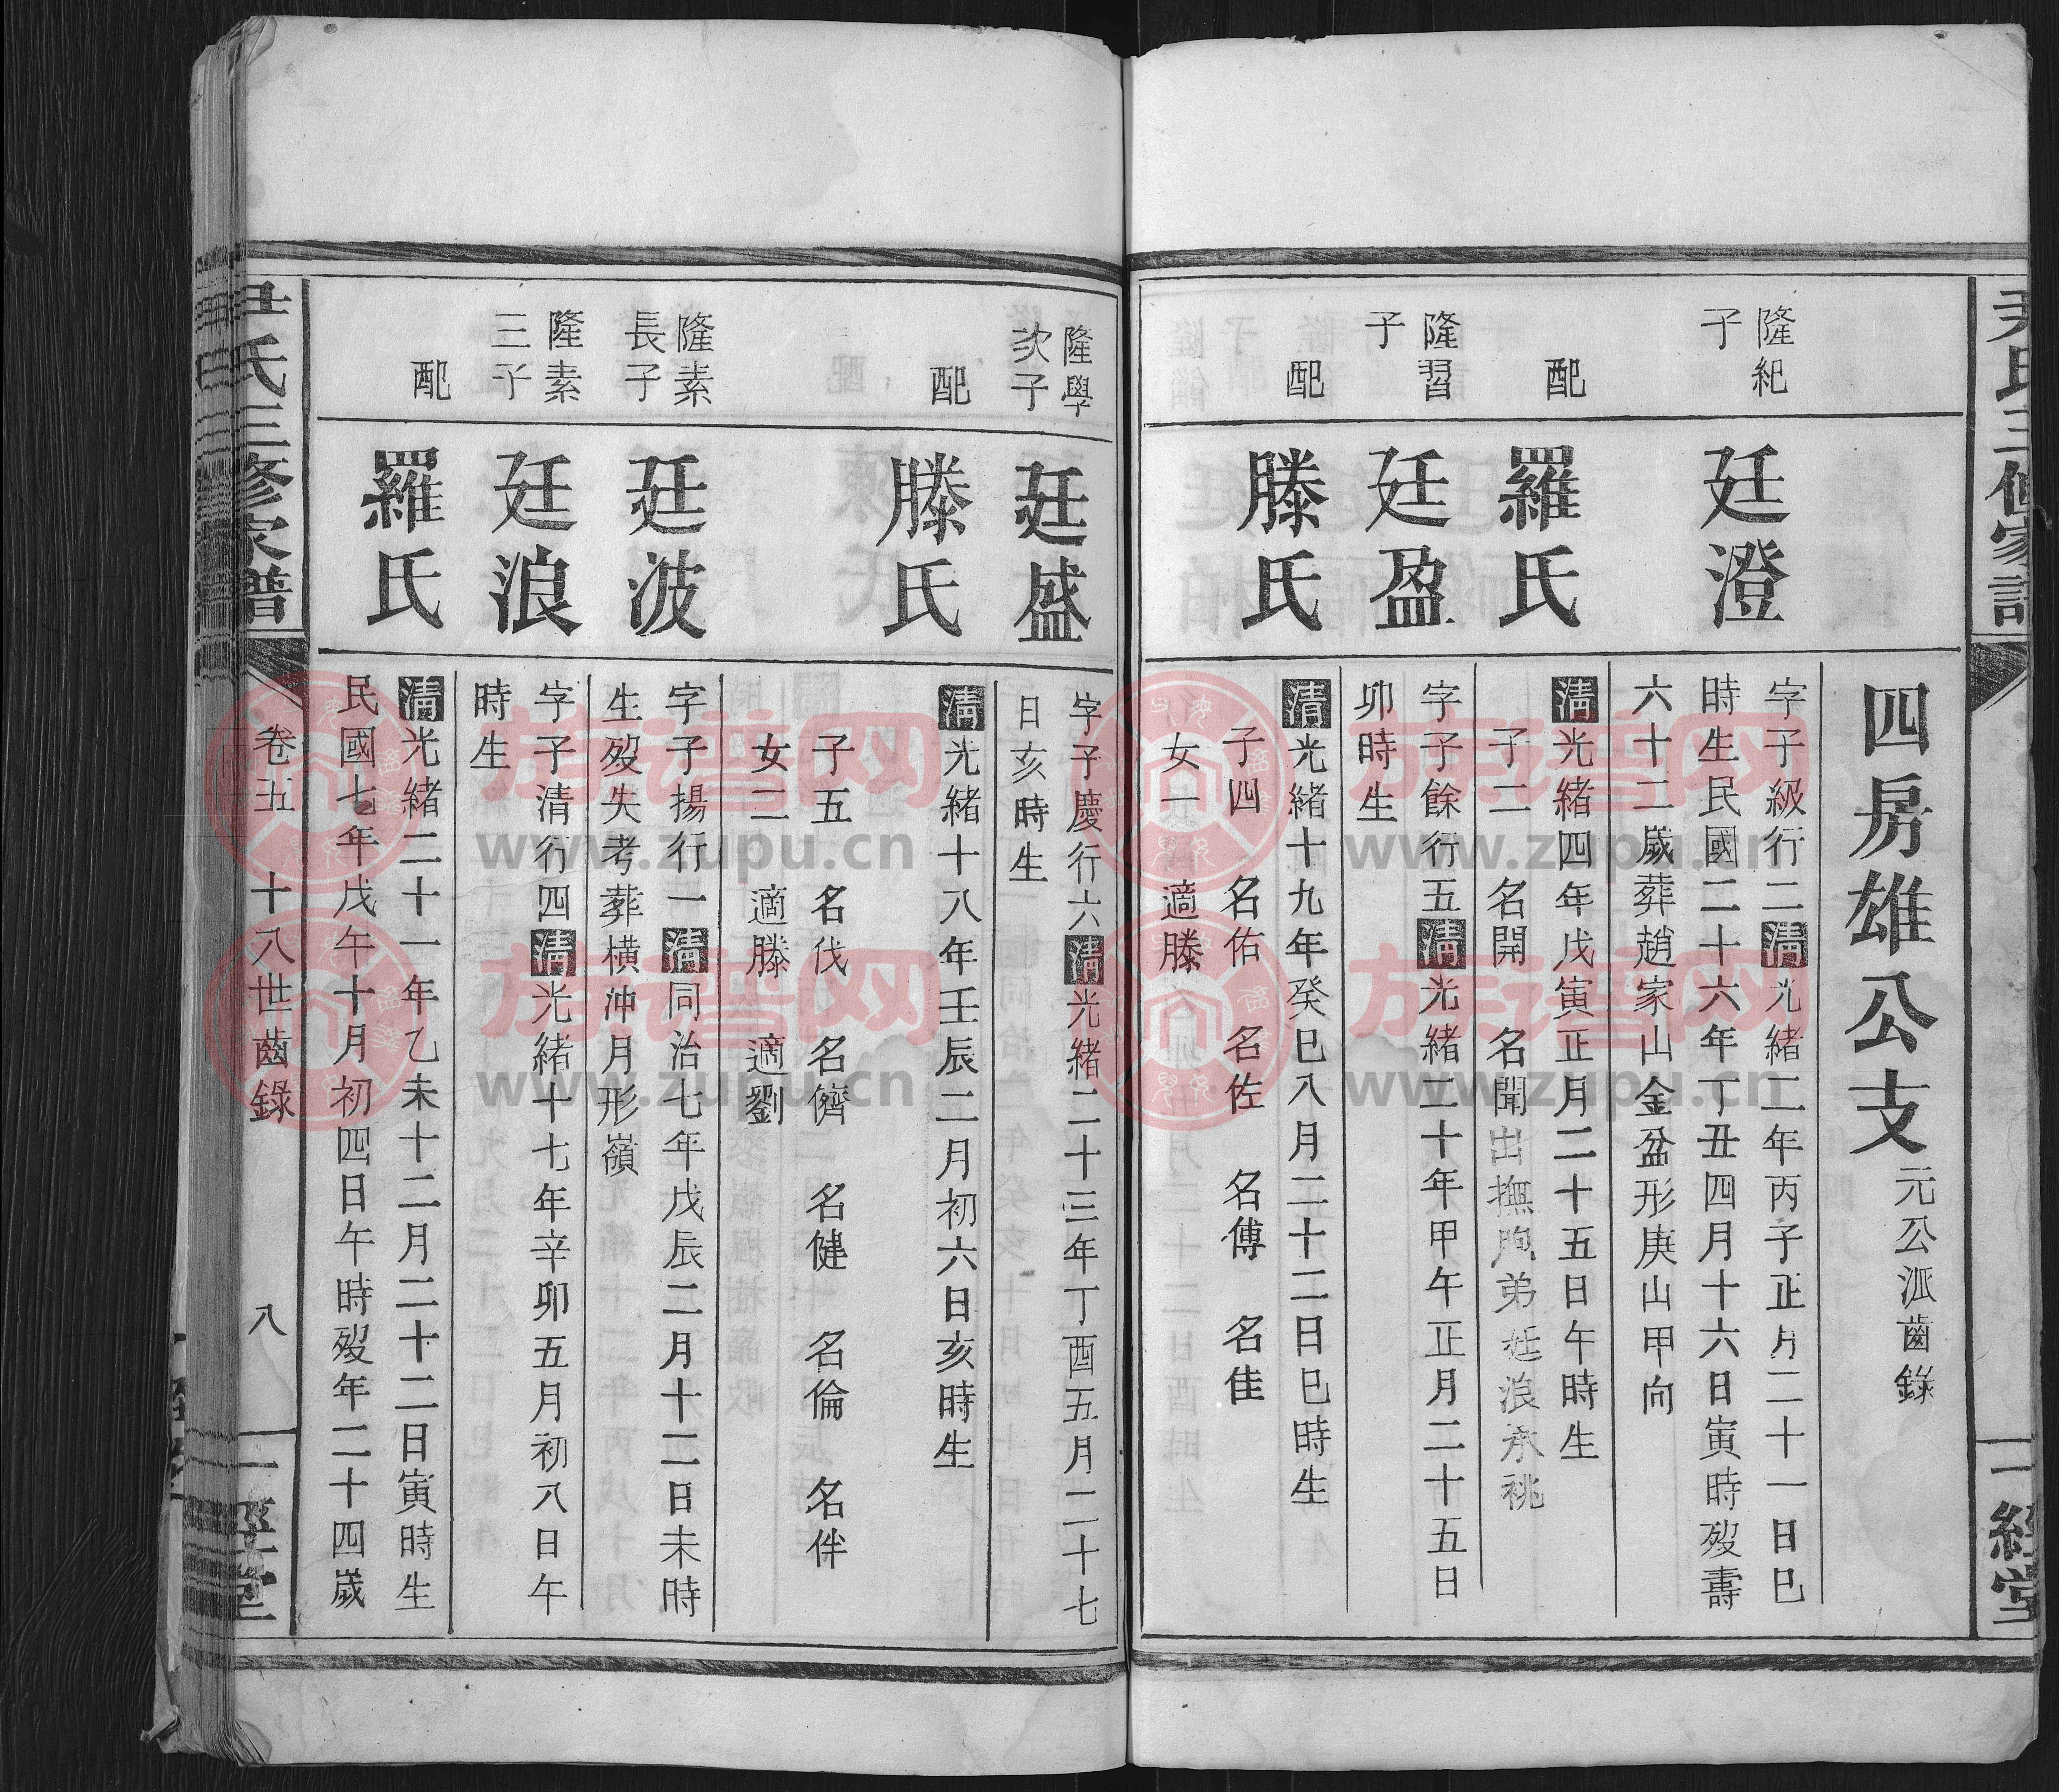 尹氏三修家譜
一經堂
四房雄公支 元公派齒錄
隆紀
子
廷澄
字子級行二清光緒二年丙子正月二十一日巳
時生民國二十六年丁丑四月十六日寅時歿壽
六十二歲葬趙家山金盆形庚山甲向
配
羅氏
清光緒四年戊寅正月二十五日午時生
子二 名開 名聞出撫胞弟廷浪承祧
隆習
子
廷盈
字子餘行五清光緒二十年甲午正月二十五日
卯時生
配
滕氏
清光緒十九年癸巳八月二十二日巳時生
子四 名佑 名佐 名傳 名佳
女一 適滕
隆學
次子
廷盛
字子慶行六清光緒二十三年丁酉五月二十七
日亥時生
配
滕氏
清光緒十八年壬辰二月初六日亥時生
子五 名伐 名儕 名健 名倫 名伴
女二 適滕 適劉
隆素
長子
廷波
字子揚行一清同治七年戊辰二月十二日未時
生歿失考葬橫沖月形嶺
隆素
三子
廷浪
字子清行四清光緒十七年辛卯五月初八日午
時生
配
羅氏
清光緒二十一年乙未十二月二十二日寅時生
民國七年戊午十月初四日午時歿年二十四歲
尹氏三修家譜
卷五 十八世齒錄
八
一經堂
族谱网
www.zupu.cn
族谱网
www.zupu.cn
族谱网
www.zupu.cn
族谱网
www.zupu.cn